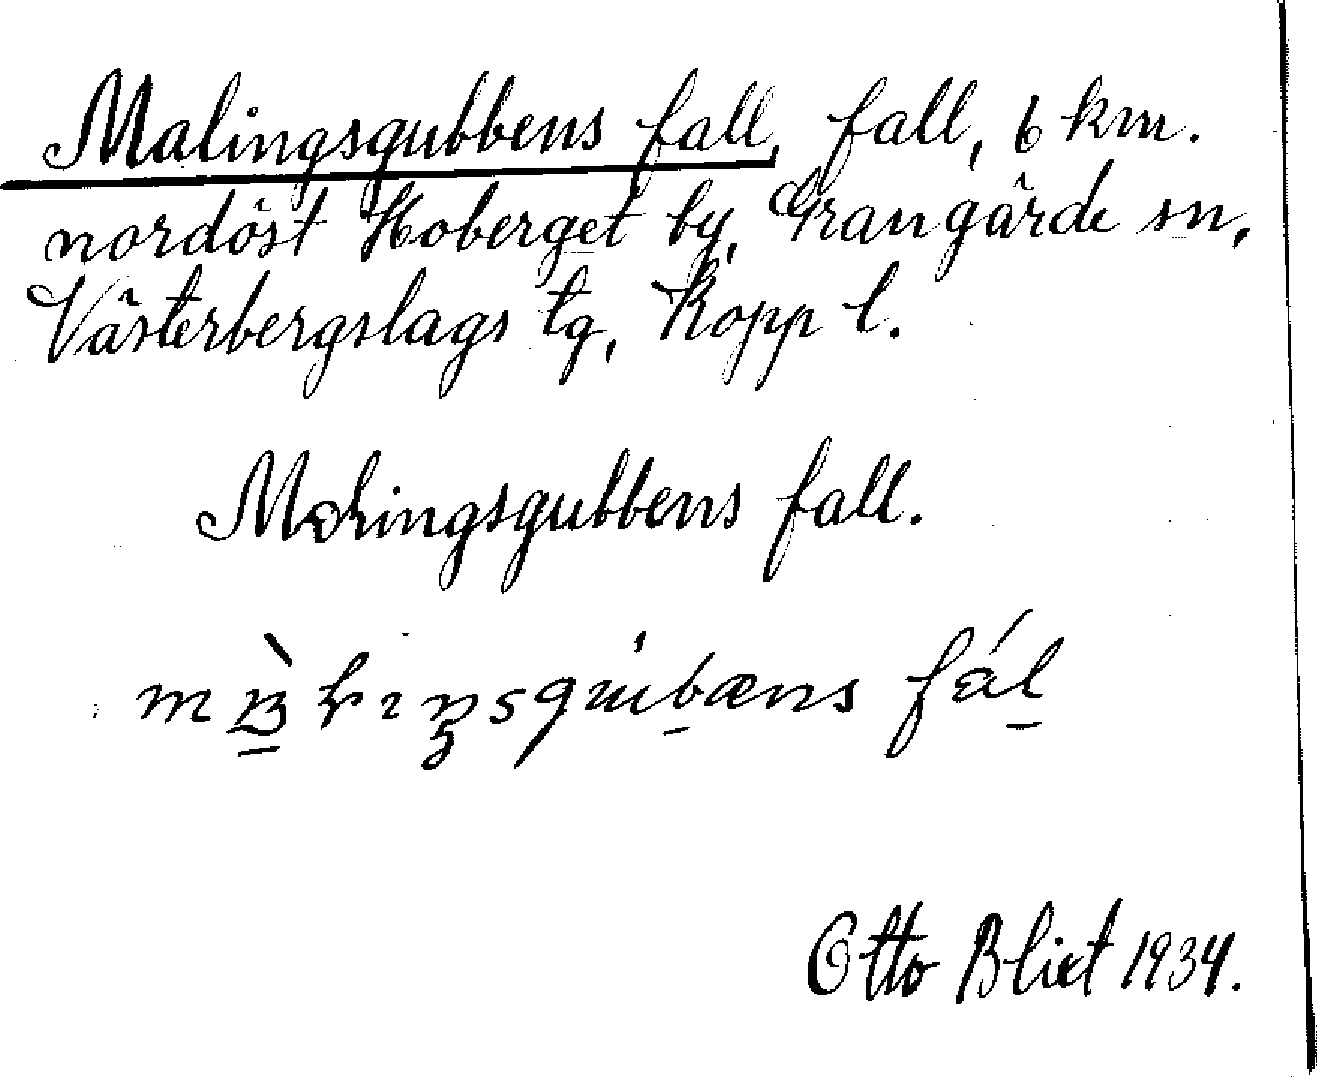 Malingsgubbens fall, fall, 6 km.
nordöst Hoberget by, Grangärde sn,
Västerbergslags tg, Kopp l.
Malingsgubbens fall.
fál
Otto Blixt 1934.